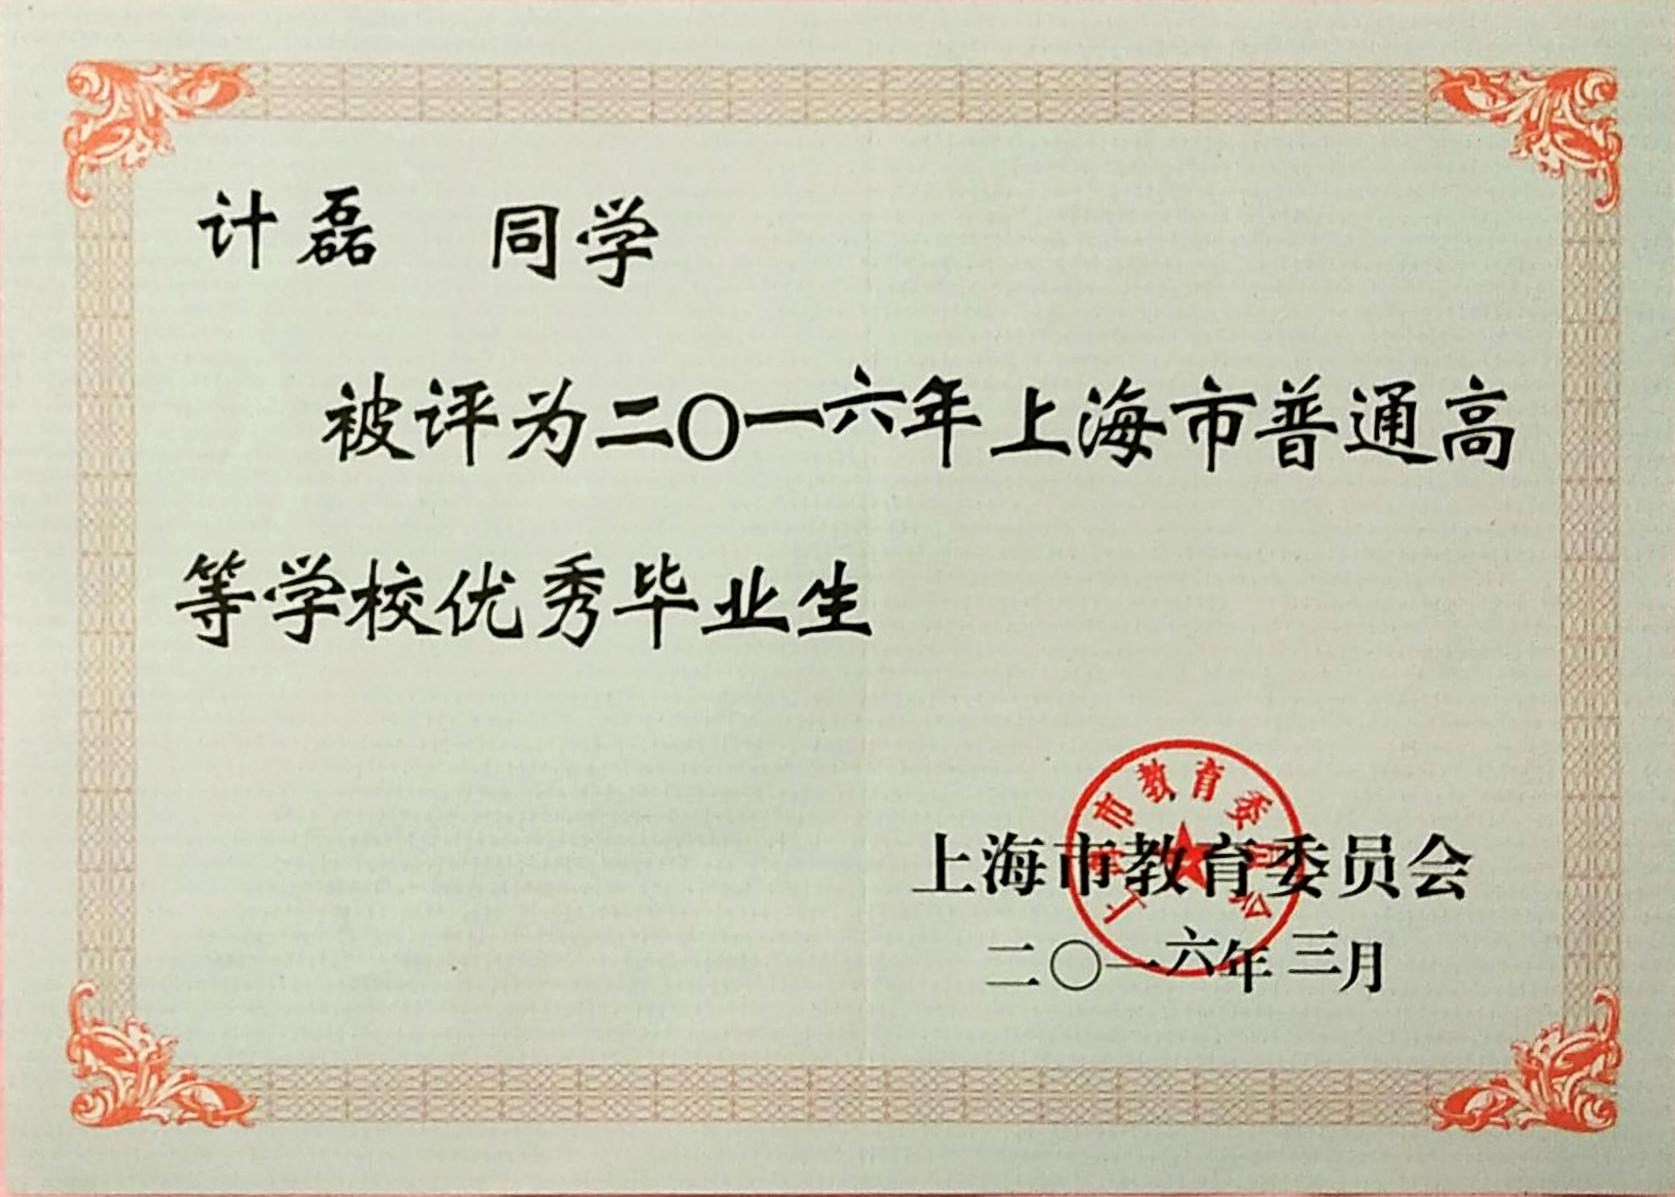 计磊 同学
被评为二〇一六年上海市普通高
等学校优秀毕业生
上海市教育委员会
上海市教育委员会
二〇一六年三月